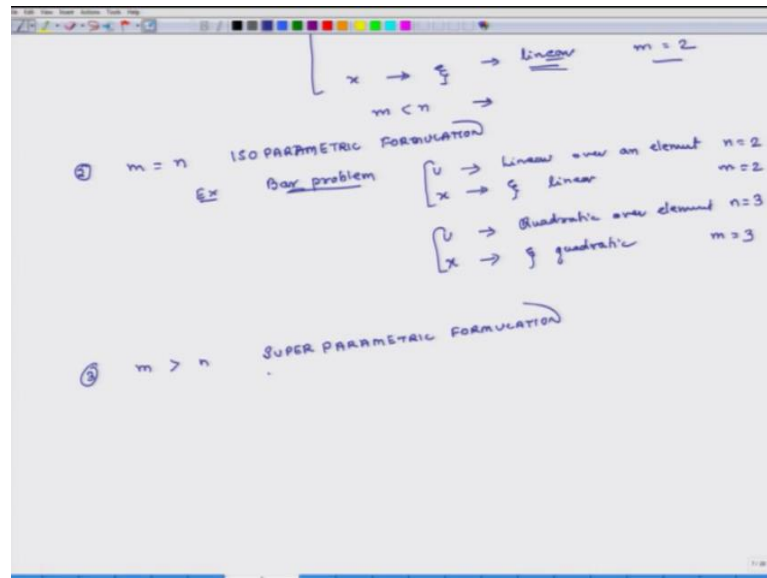 x → ξ → linear m = 2
m < n →
② m = n ISO PARAMETRIC FORMULATION
Ex Bar problem
u → Linear over an element n = 2
x → ξ linear m = 2
u → Quadratic over element n = 3
x → ξ quadratic m = 3
③ m > n SUPER PARAMETRIC FORMULATION